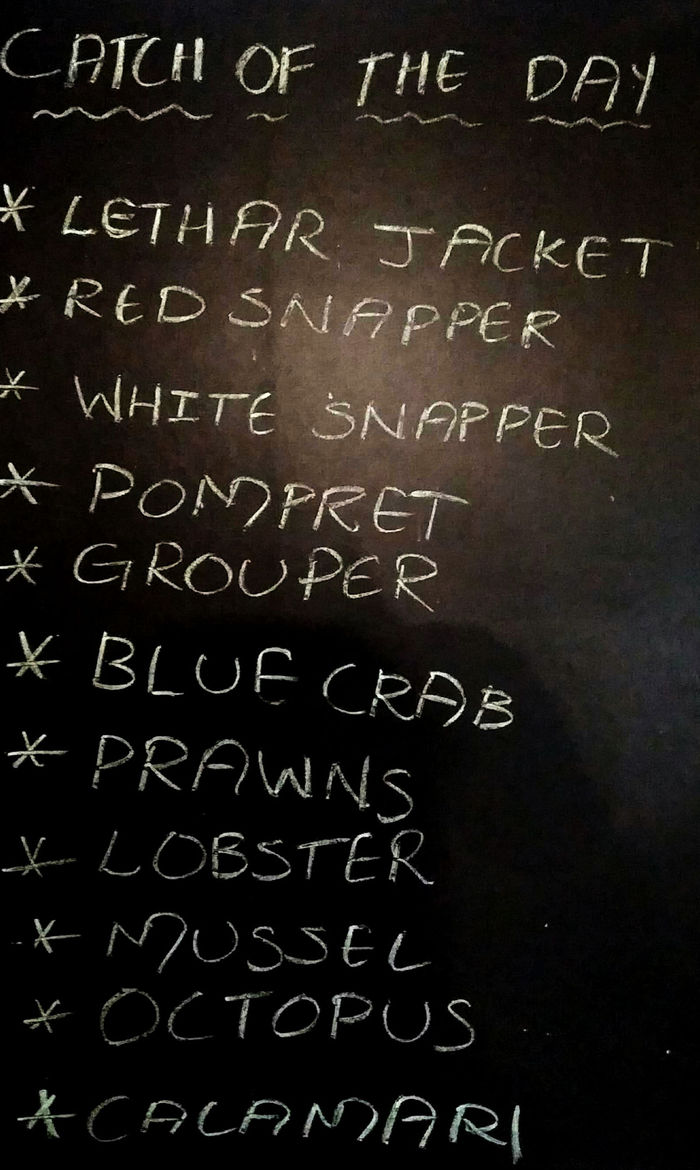 CATCH OF THE DAY
* LETHAR JACKET
* RED SNAPPER
* WHITE SNAPPER
* POMPRET
* GROUPER
* BLUE CRAB
* PRAWNS
* LOBSTER
* MUSSEL
* OCTOPUS
* CALAMARI